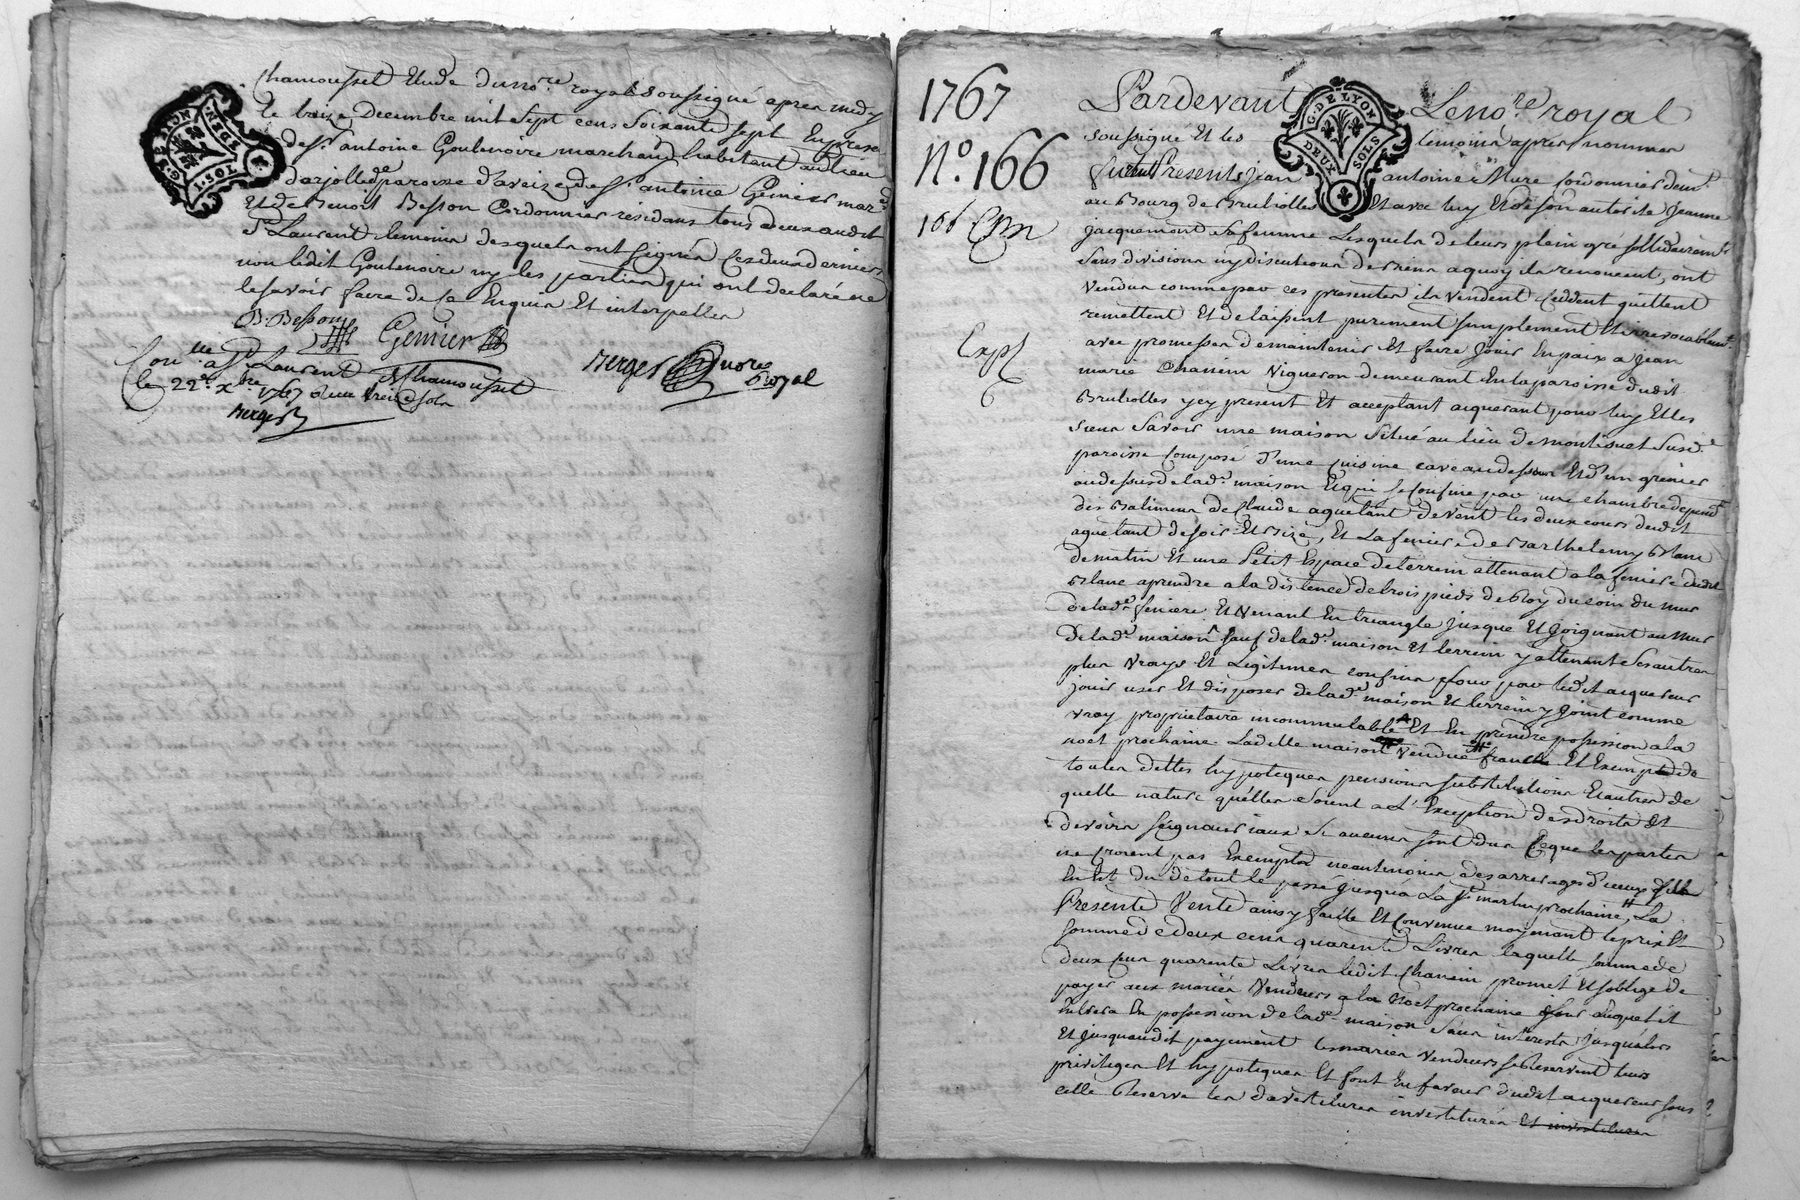 Chamousset Etude du no.re royal soussigné apres midy
Le treize Decembre mil Sept cens Soixante Sept En presence
de S.r antoine Goutenoire marchand habitant au lieu
d'arjolle paroisse d'aveize de S.r antoine Genier mar.d
Et de Benoit Besson Cordonnier residans tous deux audit
S.t Laurent temoins desquels ont signés Ces deux derniers
non ledit Goutenoire ny les parties qui ont declaré ne
le Savoir faire de ce Enquis Et interpellés
B. Besson Genier
Berger no.re royal
Con.lle a S.t Laurent de Chamousset
le 22.e x.bre 1767 Reçu treize sols
Berger
G. DE LYON
1. SOL
1767
N.o 166
166
Exp.
Pardevant Le no.re royal
soussigné Et les temoins apres nommés
furent Presents jean antoine Mure Cordonnier demt.
au Bourg de Brullioles Et avec luy Et de son autorité Jeanne
jacquemont Sa femme Lesquels de leurs plein gré sollidairemt.
Sans division ny discution de biens a quoy ils renoncent, ont
vendus comme par ces presentes ils vendent Ceddent quittent
remettent Et delaissent purement simplement Et irrevocablemt.
avec promesses de maintenir Et faire jouir En paix a Jean
marie Chanein vigneron demeurant En la paroisse dudit
Brullioles y cy present Et acceptant acquerant pour luy Et les
Siens Savoir une maison Situé au lieu de montisuet Susd.e
paroisse Composé d'une cuisine cave au dessous Et d'un grenier
au dessus de lad.e maison Et qui se Confine par une chambre dependt.
des Batimens de Claude aguetant de vent les deux cours dudit
aguetant de soir Et bize, Et La feniere de Barthelemy Blanc
de matin Et une Petit Espace de terrein attenant a la feniere dudit
Blanc aprendre a la distence de trois pieds de Roy du coin du mur
de lad.e feniere Et venant En triangle jusque Et joignant au mur
de lad.e maison, sauf de lad.e maison Et terrein y attenant Ses autres
plus vrays Et Legitimes confins pour par ledit acquereur
jouir user Et disposer de lad.e maison Et terrein y joint comme
vray proprietaire incommutable Et En prendre possession a la
noel prochaine Ladite maison vendue franche Et Exempte de
toutes dettes hypoteques pensions substitutions Et autres de
quelle nature quelles Soient a L'Exception des droits Et
devoirs seigneuriaux Si aucuns sont dus Ce que les parties
ne croient pas Exempte neantmoins des arrerages d'iceux
Et du detout le passé jusqua La S.t martin prochaine, La
Presente Vente ainsy faitte Et Convenue moyenant le prix Et
somme de deux cens quarente Livres laquelle somme de
deux cens quarente Livres ledit Chanein promet Et s'oblige de
payer aux mariés vendeurs a la Noel prochaine jour auquel il
Entrera En possession de lad.e maison Sans interests jusqu'alors
Et jusquaudit payement les mariés vendeurs se Reservent leurs
privileges Et hypoteques Et font En faveur dudit acquereur sous
celle Reserve les devestitures investitures Et investitures
G. DE LYON
DEUX SOLS